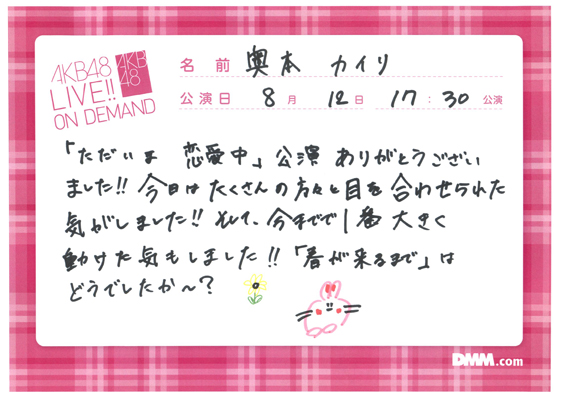 AKB48
LIVE!!
ON DEMAND
AKB
48
名 前 奥本 カイリ
公演日 8月 12日 17:30 公演
「ただいま 恋愛中」公演 ありがとうござい
ました!! 今日は たくさんの方々と目を合わせられた
気がしました!! そして、今までで1番 大きく
動けた気もしました!!「春が来るまで」は
どうでしたか〜?
DMM.com